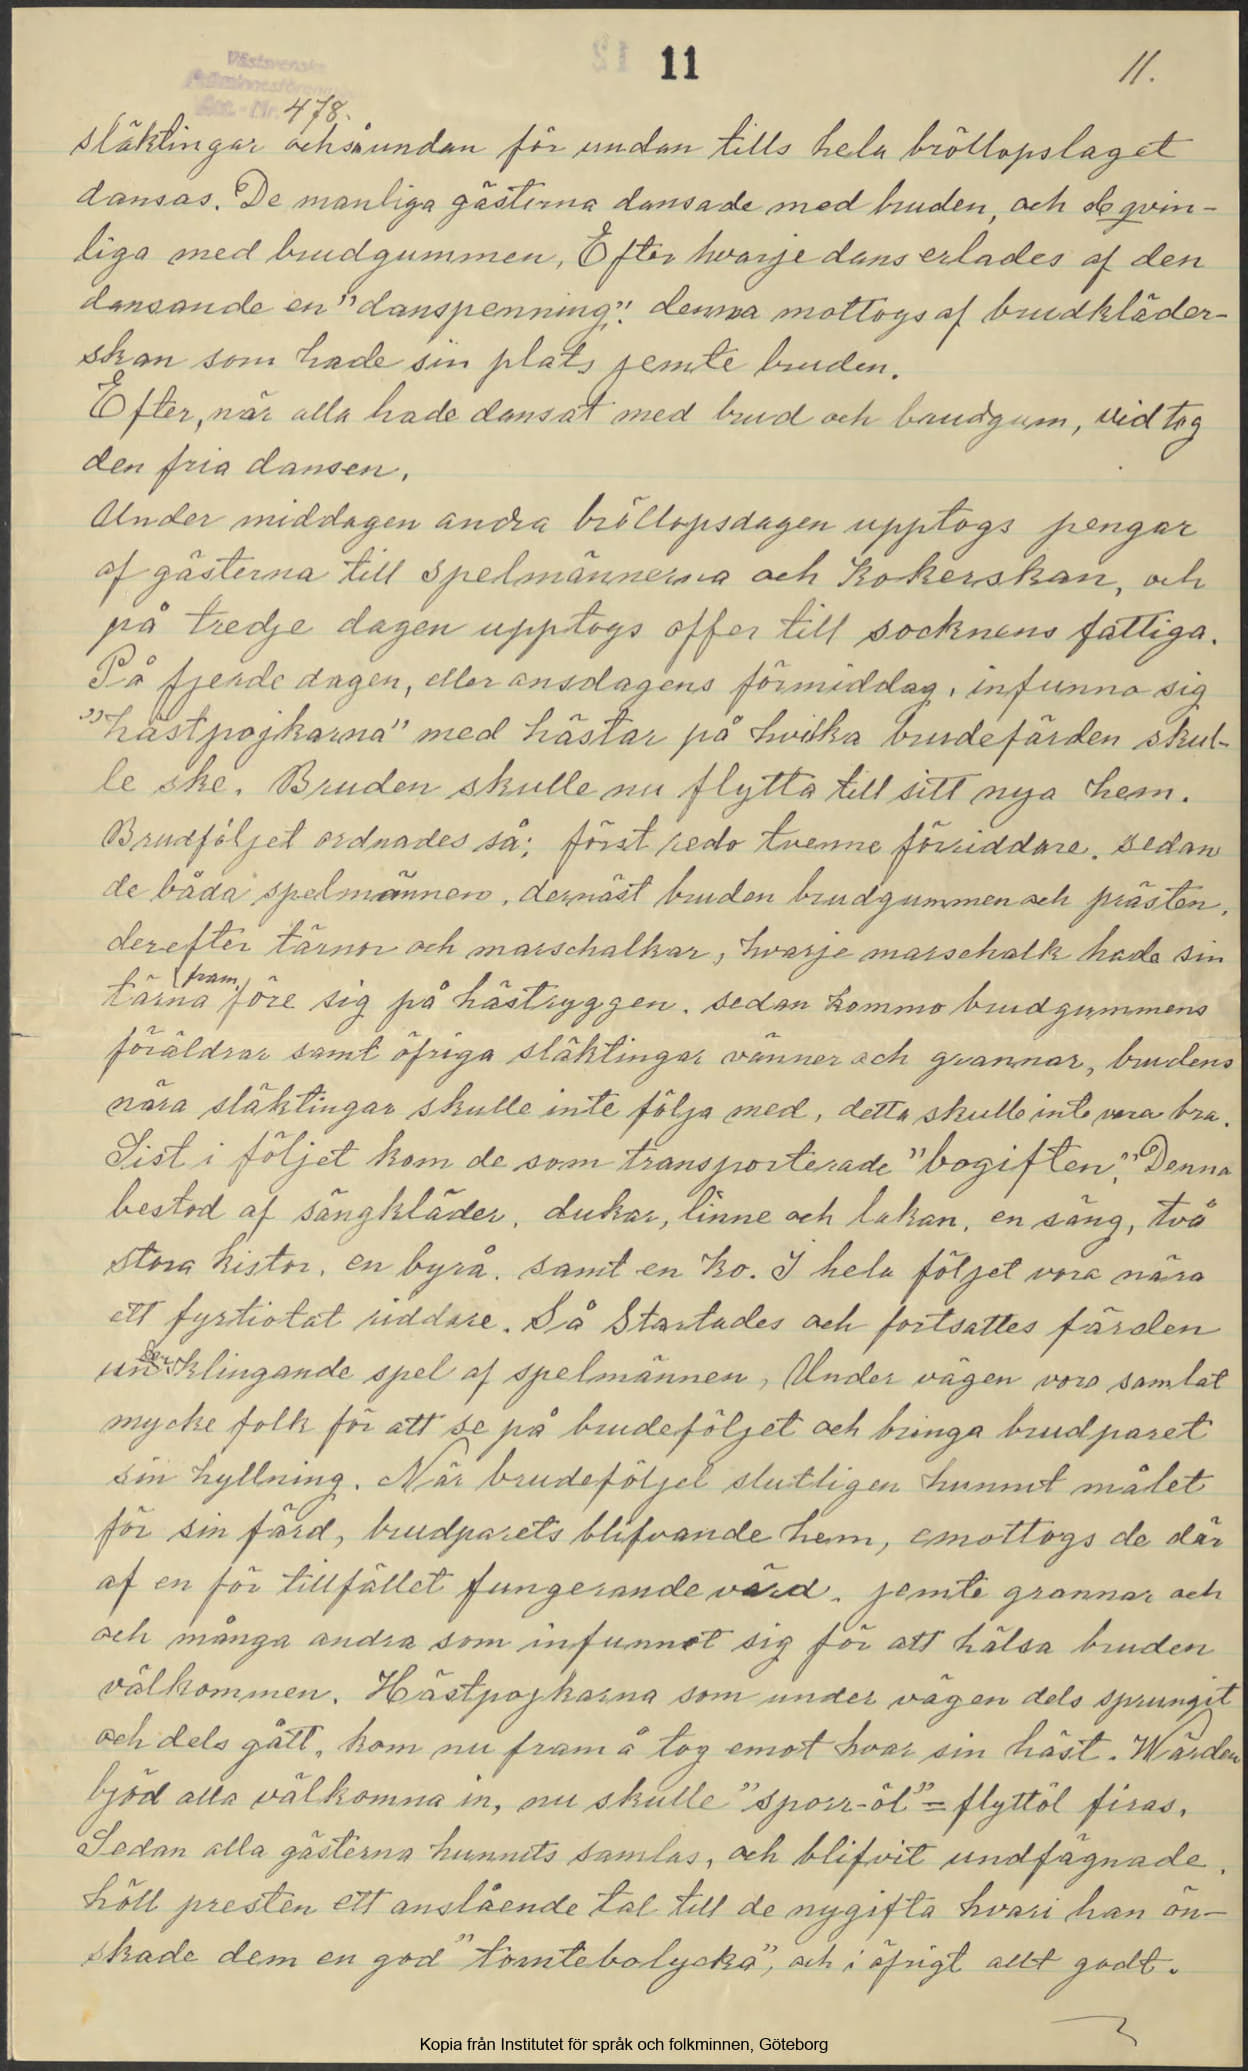 11
11.
Västsvenska
478.
släktingar och så undan för undan tills hela bröllopslaget
dansas. De manliga gästerna dansade med bruden, och de qvin-
liga med brudgummen. Efter hvarje dans erlades af den
dansande en "danspenning". denna mottogs af brudkläder-
skan som hade sin plats jemte bruden.
Efter, när alla hade dansat med brud och brudgum, vid tog
den fria dansen.
Under middagen andra bröllopsdagen upptogs pengar
af gästerna till spelmännerna och kokerskan, och
på tredje dagen upptogs offer till socknens fattiga.
På fjerde dagen, eller onsdagens förmiddag, infunno sig
"hästpojkarna" med hästar på hvilka brudefärden skul-
le ske. Bruden skulle nu flytta till sitt nya hem.
Brudföljet ordnades så; först redo tvenne förriddare. sedan
de båda spelmännen, dernäst bruden brudgummen och prästen.
derefter tärnor och marschalkar, hvarje marschalk hade sin
tärna fram före sig på hästryggen. sedan kommo brudgummens
föräldrar samt öfriga släktingar vänner och grannar, brudens
nära släktingar skulle inte följa med, detta skulle inte vara bra.
Sist i följet kom de som transporterade "bogiften". Denna
bestod af sängkläder, dukar, linne och lakan, en säng, två
stora kistor, en byrå. samt en ko. I hela följet vora nära
ett fyrtiotat riddare. Så startades och fortsattes färden
under klingande spel af spelmännen, Under vägen voro samlat
mycke folk för att se på brudeföljet och bringa brudparet
sin hyllning. När brudeföljet slutligen hunnit målet
för sin färd, brudparets blifvande hem, emottogs de där
af en för tillfället fungerande värd. jemte grannar och
och många andra som infunnet sig för att hälsa bruden
välkommen. Hästpojkarna som under vägen dels sprungit
och dels gått, kom nu fram å tog emot hvar sin häst. Wärden
bjöd alla välkomna in, nu skulle "sporr-öl" = flyttöl firas.
Sedan alla gästerna hunnits samlas, och blifvit undfägnade.
höll presten ett anslående tal till de nygifta hvari han ön-
skade dem en god "tomtebolycka", och i öfrigt allt godt.
Kopia från Institutet för språk och folkminnen, Göteborg